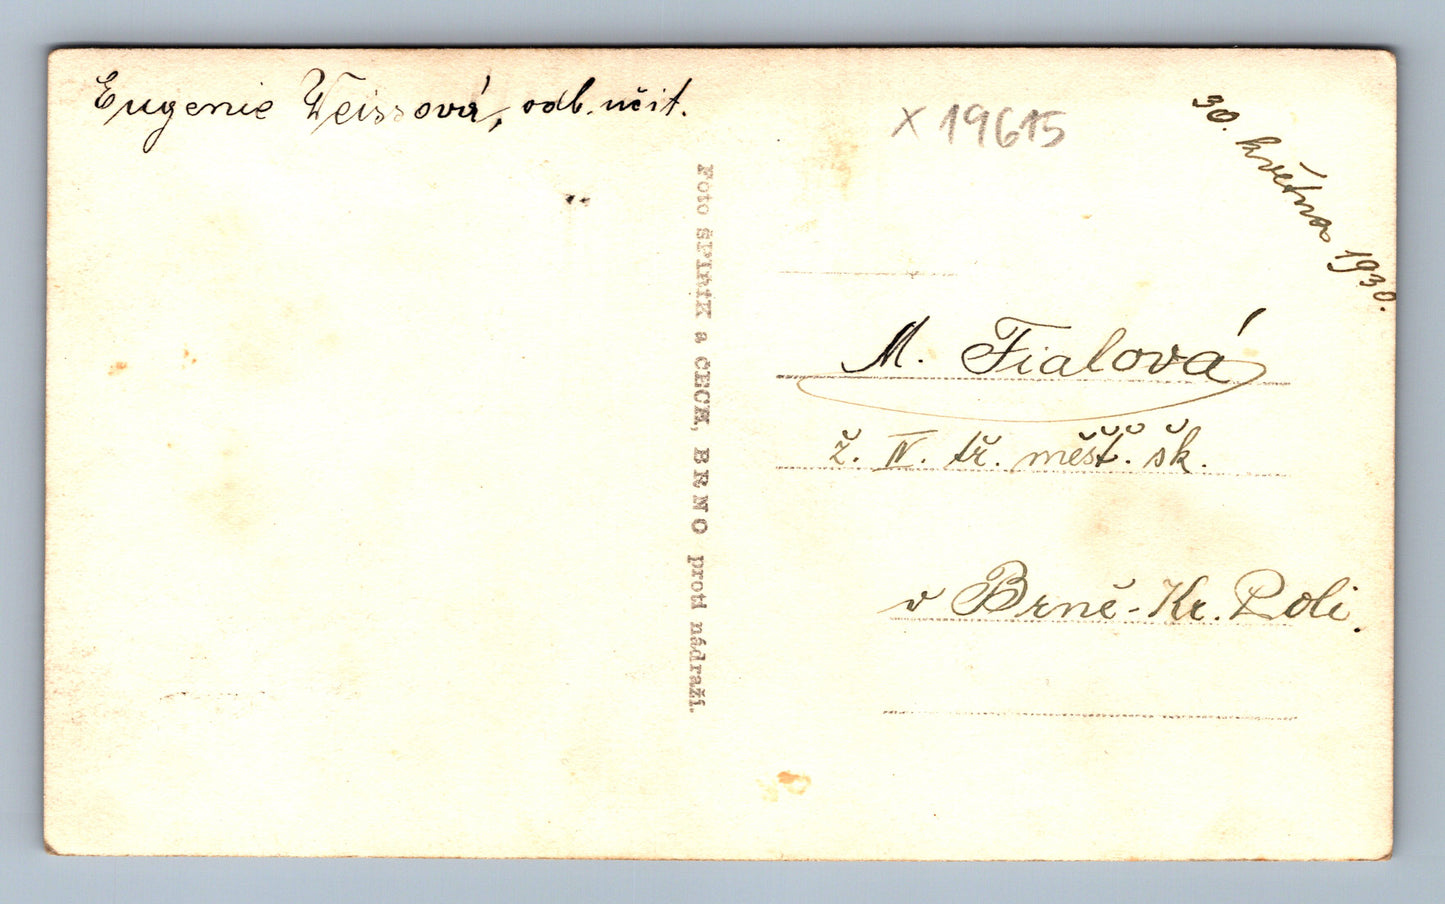 Eugenie Weissová, odb. učit.
x 19615
30. května 1930.
Foto ŠPIŘÍK a ČECH, BRNO proti nádraží.
M. Fialová
ž. IV. tř. měšť. šk.
v Brně-Kr. Poli.